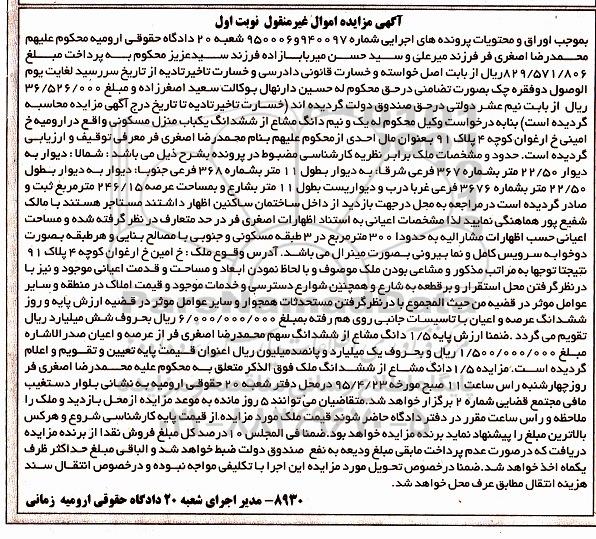 آگهی مزایده اموال غیرمنقول نوبت اول
بموجب اوراق و محتویات پرونده های اجرایی شماره ۹۴۰۰۹۷و۹۵۰۰۰۶ شعبه ۲۰ دادگاه حقوقی ارومیه محکوم علیهم
محمدرضا اصغری فر فرزند میرعلی و سید حسن میربابازاده فرزند سیدعزیز محکوم به پرداخت مبلغ
۸۲۹/۵۷۱/۸۰۶ریال از بابت اصل خواسته و خسارت قانونی دادرسی و خسارت تاخیرتادیه از تاریخ سررسید لغایت یوم
الوصول دوفقره چک بصورت تضامنی درحق محکوم له حسین دارنهال بوکالت سعید اصغرزاده و مبلغ ۳۶/۵۲۶/۰۰۰
ریال از بابت نیم عشر دولتی درحق صندوق دولت گردیده اند (خسارت تاخیرتادیه تا تاریخ درج آگهی مزایده محاسبه
گردیده است) بنابه درخواست وکیل محکوم له یک و نیم دانگ مشاع از ششدانگ یکباب منزل مسکونی واقع در ارومیه خ
امینی خ ارغوان کوچه ۴ پلاک ۹۱ بعنوان مال احدی ازمحکوم علیهم بنام محمدرضا اصغری فر معرفی توقیف و ارزیابی
گردیده است. حدود و مشخصات ملک برابر نظریه کارشناسی مضبوط در پرونده بشرح ذیل می باشد : شمالا : دیوار به
دیوار ۲۲/۵۰ متر بشماره ۳۶۷ فرعی شرقا: به دیوار بطول ۱۱ متر بشماره ۳۶۸ فرعی جنوبا: دیوار به دیوار بطول
۲۲/۵۰ متر بشماره ۳۶۷۶ فرعی غربا درب و دیواریست بطول ۱۱ متر بشارع و بمساحت عرصه ۲۴۶/۱۵ مترمربع ثبت و
صادر گردیده است درمراجعه به محل درجهت بازدید از داخل ساختمان ساکنین اظهار داشتند مستاجر هستند با مالک
شفیع پور هماهنگی نمایید لذا مشخصات اعیانی به استناد اظهارات اصغری فر در حد متعارف در نظر گرفته شده و مساحت
اعیانی حسب اظهارات مشارالیه به حدودا ۳۰۰ مترمربع در ۳ طبقه مسکونی و جنوبی با مصالح بنایی و هرطبقه بصورت
دوخوابه سرویس کامل و نما بیرونی بصورت مینرال می باشد. آدرس وقوع ملک : خ امین خ ارغوان کوچه ۴ پلاک ۹۱
نتیجتا توجها به مراتب مذکور و مشاعی بودن ملک موصوف و با لحاظ نمودن ابعاد و مساحت و قدمت اعیانی موجود و نیز با
درنظرگرفتن محل استقرار و برقطعه به شارع و همچنین شوارع دسترسی و خدمات موجود و قیمت املاک در منطقه و سایر
عوامل موثر در قضیه من حیث المجموع با درنظرگرفتن مستحدثات همجوار و سایر عوامل موثر در قضیه ارزش پایه و روز
ششدانگ عرصه و اعیان با تاسیسات جانبی روی هم رفته بمبلغ ۶/۰۰۰/۰۰۰/۰۰۰ ریال بحروف شش میلیارد ریال
تقویم می گردد .ضمنا ارزش پایه ۱/۵ دانگ مشاع از ششدانگ سهم محمدرضا اصغری فر از عرصه و اعیان صدرالاشاره
مبلغ ۱/۵۰۰/۰۰۰/۰۰۰ ریال و بحروف یک میلیارد و پانصدمیلیون ریال اعنوان قیمت پایه تعیین و تقویم و اعلام
گردیده است. مزایده ۱/۵ دانگ مشاع از ششدانگ ملک فوق الذکر متعلق به محکوم علیه محمدرضا اصغری فر
روزچهارشنبه راس ساعت ۱۱ صبح مورخه ۹۵/۴/۲۳ درمحل دفتر شعبه ۲۰ حقوقی ارومیه به نشانی بلوار دستغیب
مافی مجتمع قضایی شماره ۲ برگزار خواهد شد.متقاضیان می توانند ۵ روز مانده به موعد مزایده ازمحل بازدید و ملک را
ملاحظه و راس ساعت مقرر در دفتر دادگاه حاضر شوند قیمت ملک مورد مزایده .از قیمت پایه کارشناسی شروع و هرکس
بالاترین مبلغ را پیشنهاد نماید برنده مزایده خواهد بود.ضمنا فی المجلس ۱۰ درصد کل مبلغ فروش نقدا از برنده مزایده
دریافت که درصورت عدم پرداخت مابقی مبلغ ودیعه به نفع صندوق دولت ضبط خواهد شد و الباقی مبلغ حداکثر ظرف
یکماه اخذ خواهد شد.ضمنا درخصوص تحویل مورد مزایده این اجرا با تکلیفی مواجه نبوده و درخصوص انتقال سند
هزینه انتقال مطابق عرف محل خواهد شد.
۸۹۳۰- مدیر اجرای شعبه ۲۰ دادگاه حقوقی ارومیه زمانی